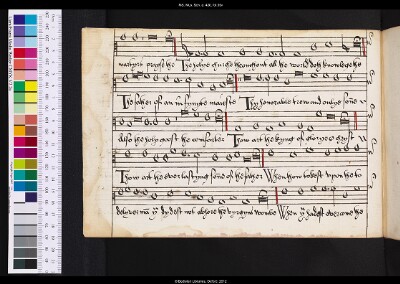 martyrs prayse the The holye churche throughout all the world doth knowledge the
The father of an infynyte maieste Thy honorable trew and onlye sone
Also the holy goost the comforter Thow art the kyng of glorye o chryst
Thow art the everlastyng sone of the father When thow tokest upon the to
delyver man thou dydest not abhore the vyrgyns wombe When thou hadest overcome the
© Bodleian Libraries, Oxford, 2012